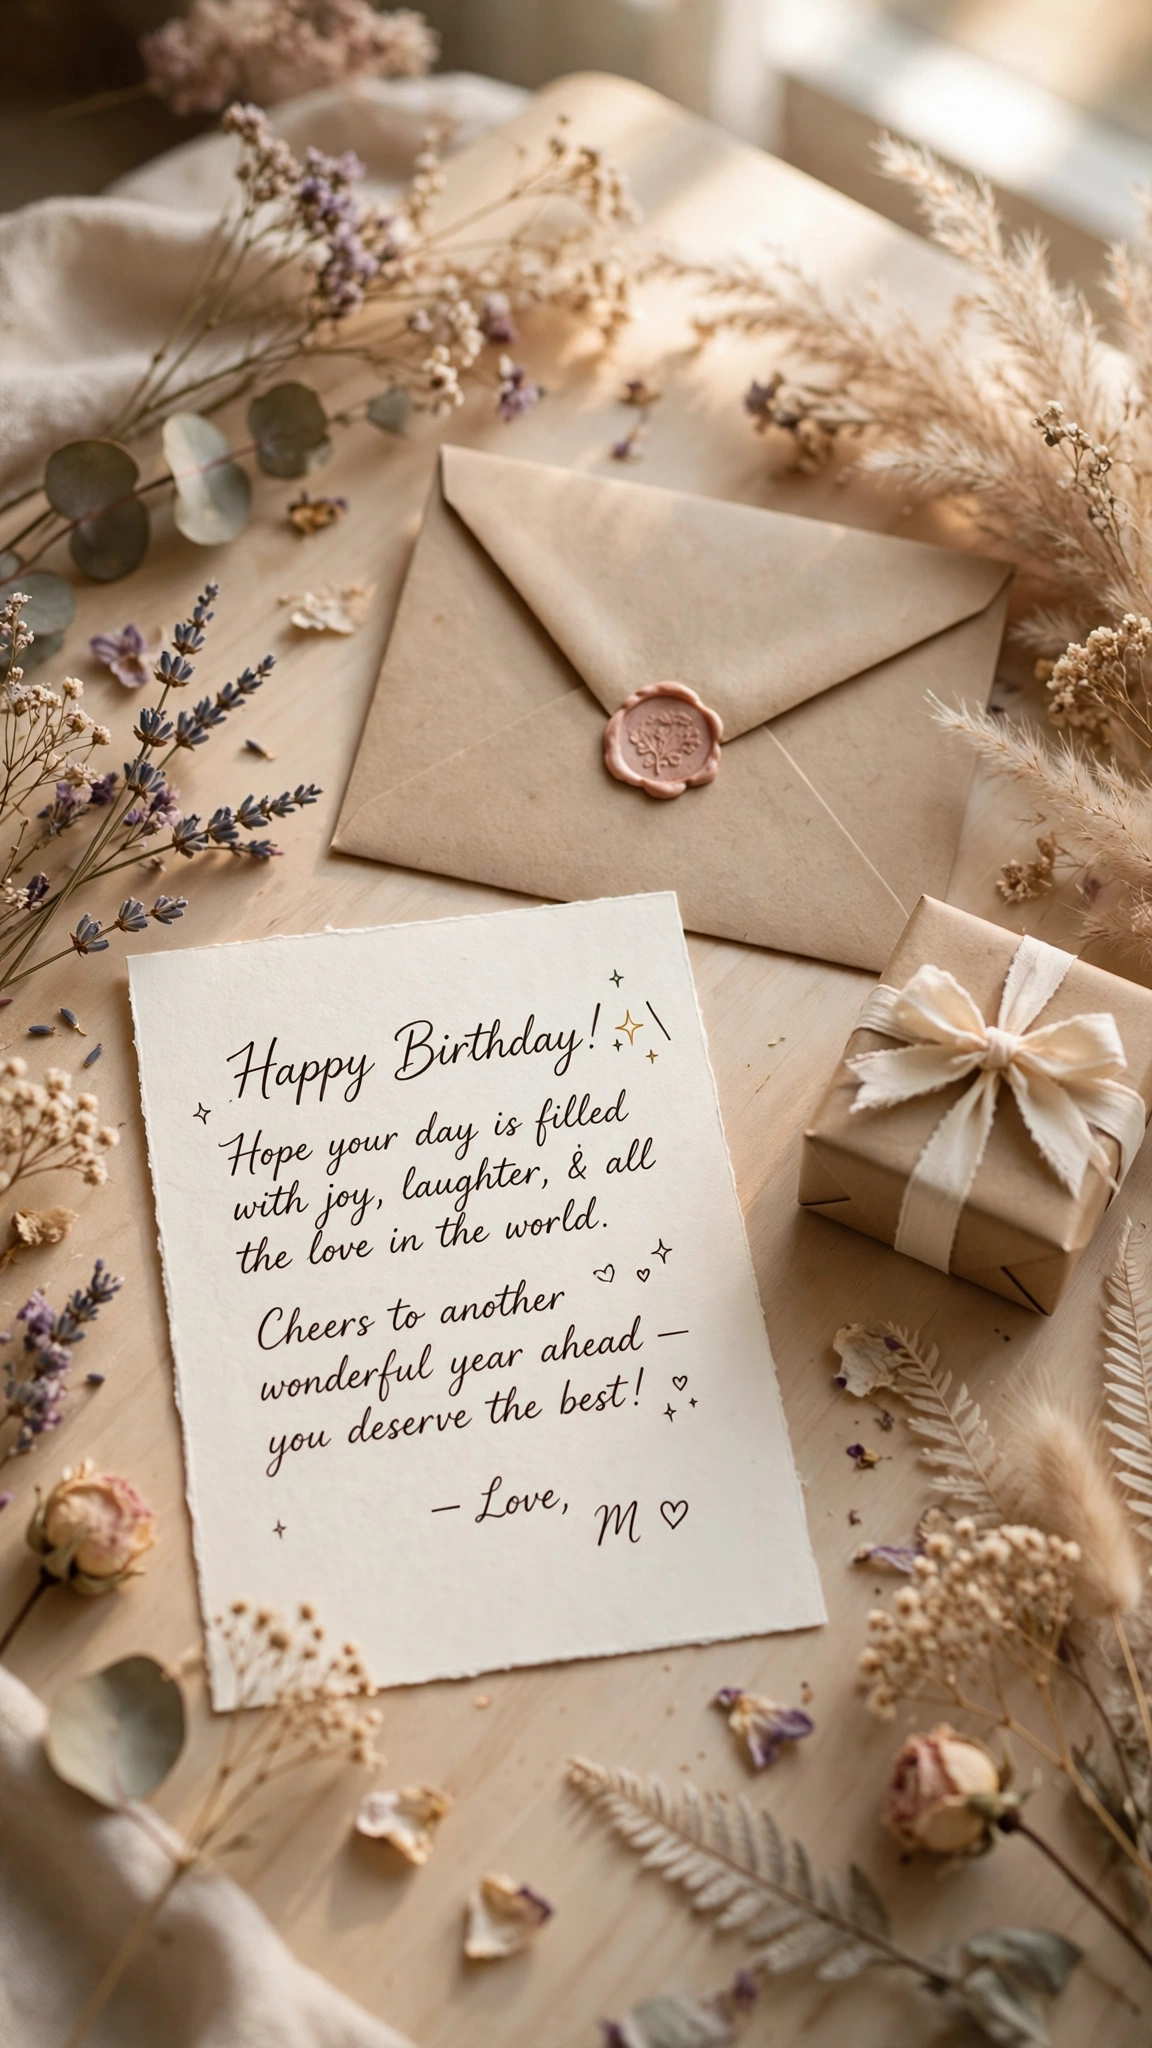 Happy Birthday!
Hope your day is filled
with joy, laughter, & all
the love in the world.
Cheers to another
wonderful year ahead —
you deserve the best!
— Love, M